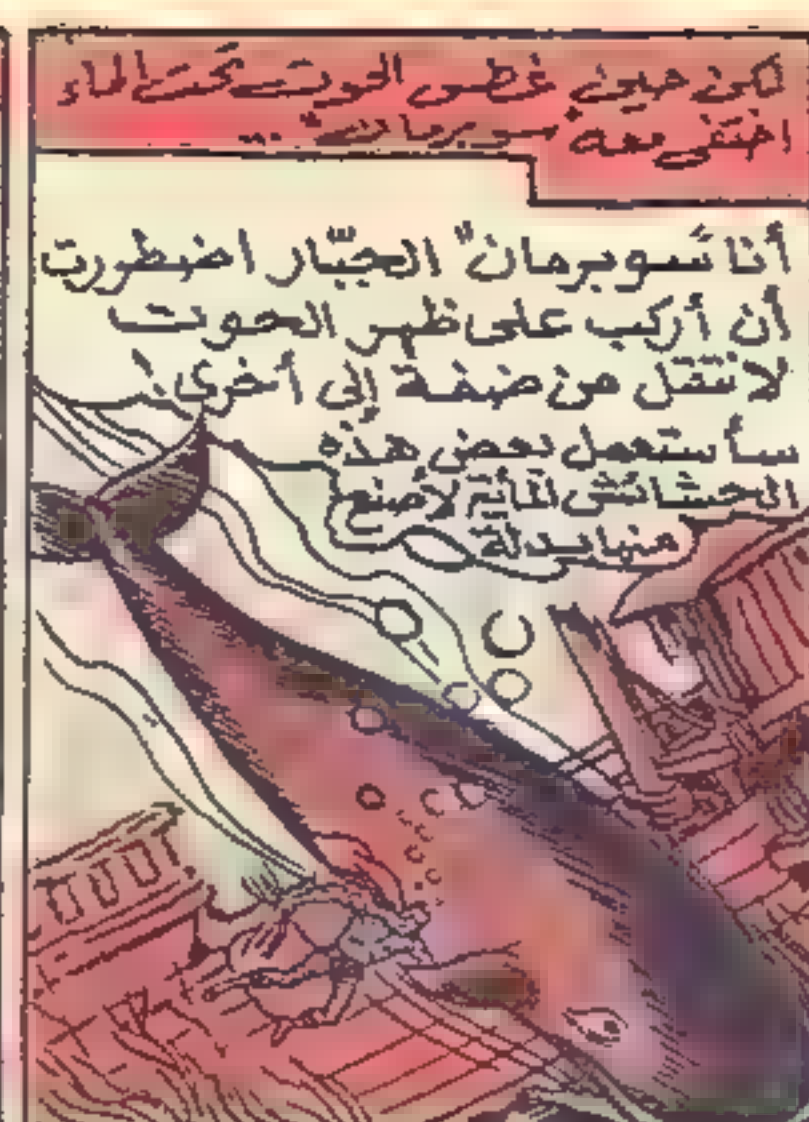 لكن حين غطس الحوت تحت الماء
اختفى معه سوبرمان ...
أنا "سوبرمان" الجبّار اضطررت
أن أركب على ظهر الحوت
لانتقل من ضفة إلى أخرى!
سأستعمل بعض هذه
الحشائش المائية لأصنع
منها بدلة